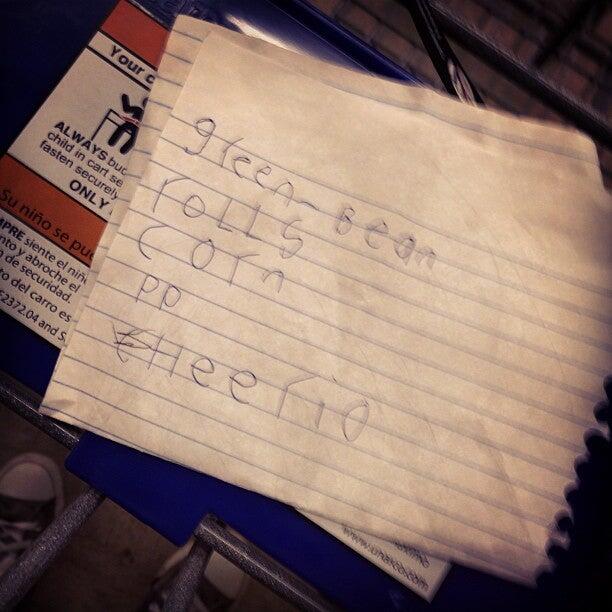 green-Bean
roLLs
corn
pp
cHeerio
Your c
ALWAYS buc
child in cart se
fasten securely
ONLY
Su niño se pue
MPRE siente el niñ
nto y abroche el
de seguridad.
to del carro es
52372.04 and S